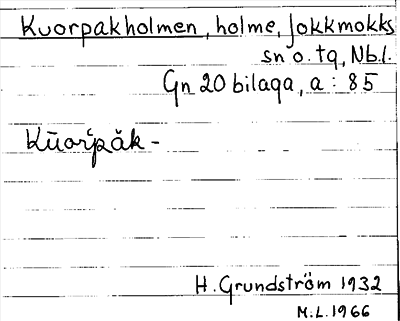 Kuorpakholmen, holme, Jokkmokks
sn o. tg, Nb.l.
Gn 20 bilaga, a: 85
Kūorʻpăk-
H. Grundström 1932
M.L. 1966